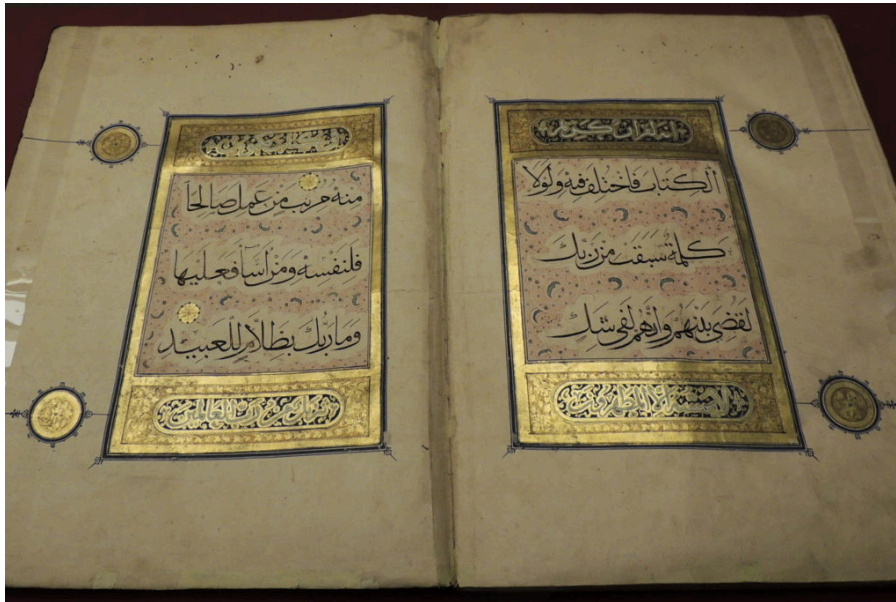 انه لقران كريم
الكتاب فاختلف فيه ولولا
كلمة سبقت من ربك
لقضى بينهم وانهم لفى شك
لا يمسه الا المطهرون
منه مريب من عمل صالحا
فلنفسه ومن اسآ فعليها
وما ربك بظلام للعبيد
تنزيل من رب العالمين